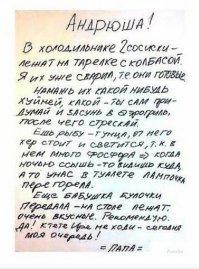 АНДРЮША!
В ХОЛОДИЛЬНИКЕ 2 СОСИСКИ –
ЛЕЖАТ НА ТАРЕЛКЕ С КОЛБАСОЙ.
Я ИХ УЖЕ СВАРИЛ, Т.Е ОНИ ГОТОВЫЕ
НАМАЖЬ ИХ КАКОЙ НИБУДЬ
ХУЙНЕЙ, КАКОЙ – ТЫ САМ ПРИ-
ДУМАЙ И ЗАСУНЬ В АЭРОГРИЛЬ,
ПОСЛЕ ЧЕГО СТРЕСКАЙ.
ЕШЬ РЫБУ – ТУНЦА, ОТ НЕГО
ХЕР СТОИТ И СВЕТИТСЯ, Т.К. В
НЕМ МНОГО ФОСФОРА => КОГДА
НОЧЬЮ ССЫШЬ – ТО ВИДИШЬ КУДА,
А ТО У НАС В ТУАЛЕТЕ ЛАМПОЧКА
ПЕРЕГОРЕЛА.
ЕЩЕ БАБУШКА БУЛОЧКИ
ПЕРЕДАЛА – НА СТОЛЕ ЛЕЖАТ.
ОЧЕНЬ ВКУСНЫЕ. РЕКОМЕНДУЮ.
ДА! К ТЕТЕ ИРЕ НЕ ХОДИ – СЕГОДНЯ
МОЯ ОЧЕРЕДЬ!
= ПАПА =